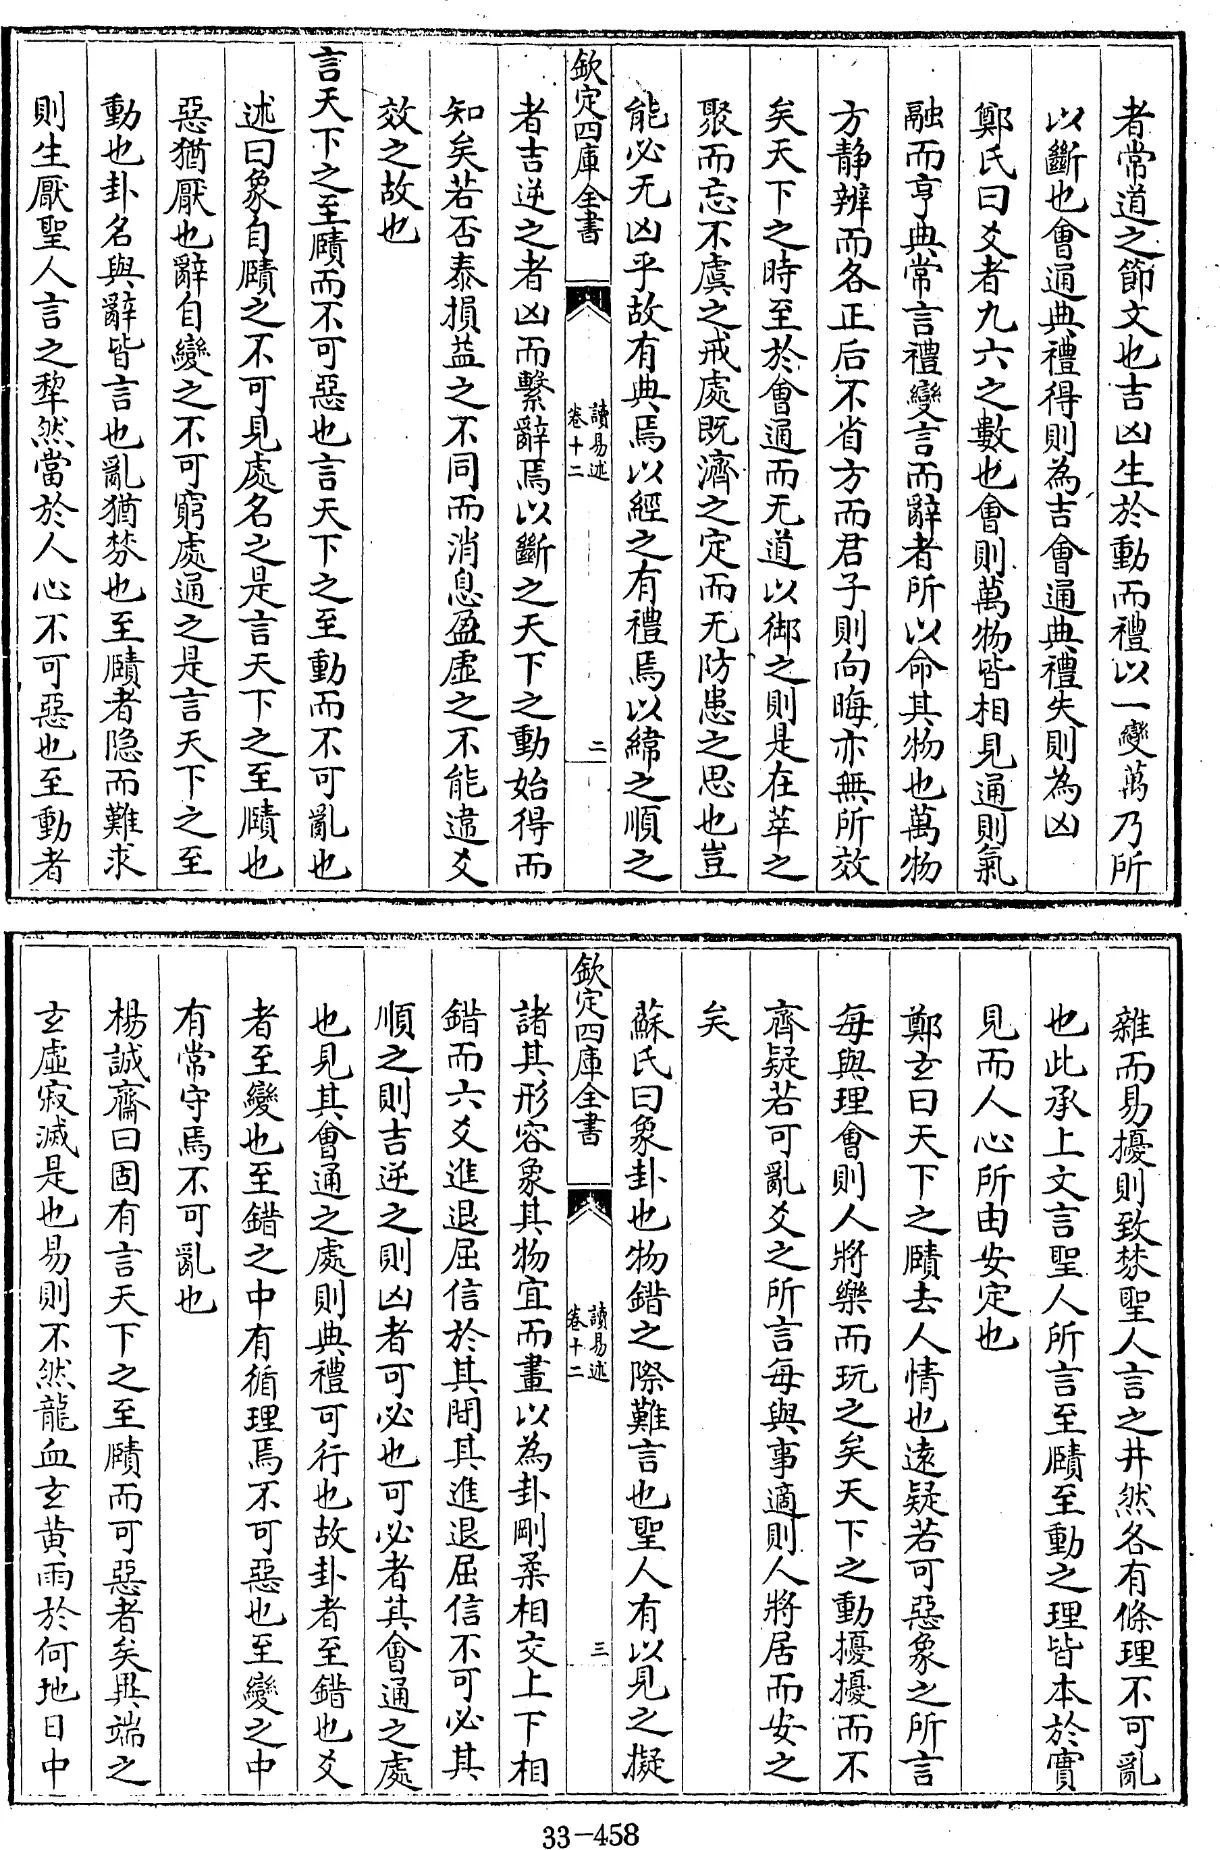 者常道之節文也吉凶生於動而禮以一變萬乃所
以斷也會通典禮得則為吉會通典禮失則為凶
鄭氏曰爻者九六之數也會則萬物皆相見通則氣
融而亨典常言禮變言而辭者所以命其物也萬物
方靜辨而各正后不省方而君子則向晦亦無所效
矣天下之時至於會通而无道以御之則是在萃之
聚而忘不虞之戒處既濟之定而无防患之思也豈
能必无凶乎故有典焉以經之有禮焉以緯之順之
欽定四庫全書
讀易述
卷十二
二
者吉逆之者凶而繫辭焉以斷之天下之動始得而
知矣若否泰損益之不同而消息盈虛之不能違爻
效之故也
言天下之至賾而不可惡也言天下之至動而不可亂也
述曰象自賾之不可見處名之是言天下之至賾也
惡猶厭也辭自變之不可窮處通之是言天下之至
動也卦名與辭皆言也亂猶棼也至賾者隱而難求
則生厭聖人言之犂然當於人心不可惡也至動者
雜而易擾則致棼聖人言之井然各有條理不可亂
也此承上文言聖人所言至賾至動之理皆本於實
見而人心所由安定也
鄭玄曰天下之賾去人情也遠疑若可惡象之所言
每與理會則人將樂而玩之矣天下之動擾擾而不
齊疑若可亂爻之所言每與事適則人將居而安之
矣
蘇氏曰象卦也物錯之際難言也聖人有以見之擬
欽定四庫全書
讀易述
卷十二
三
諸其形容象其物宜而畫以為卦剛柔相交上下相
錯而六爻進退屈信於其間其進退屈信不可必其
順之則吉逆之則凶者可必也可必者其會通之處
也見其會通之處則典禮可行也故卦者至錯也爻
者至變也至錯之中有循理焉不可惡也至變之中
有常守焉不可亂也
楊誠齋曰固有言天下之至賾而可惡者矣異端之
玄虛寂滅是也易則不然龍血玄黃雨於何地日中
33-458